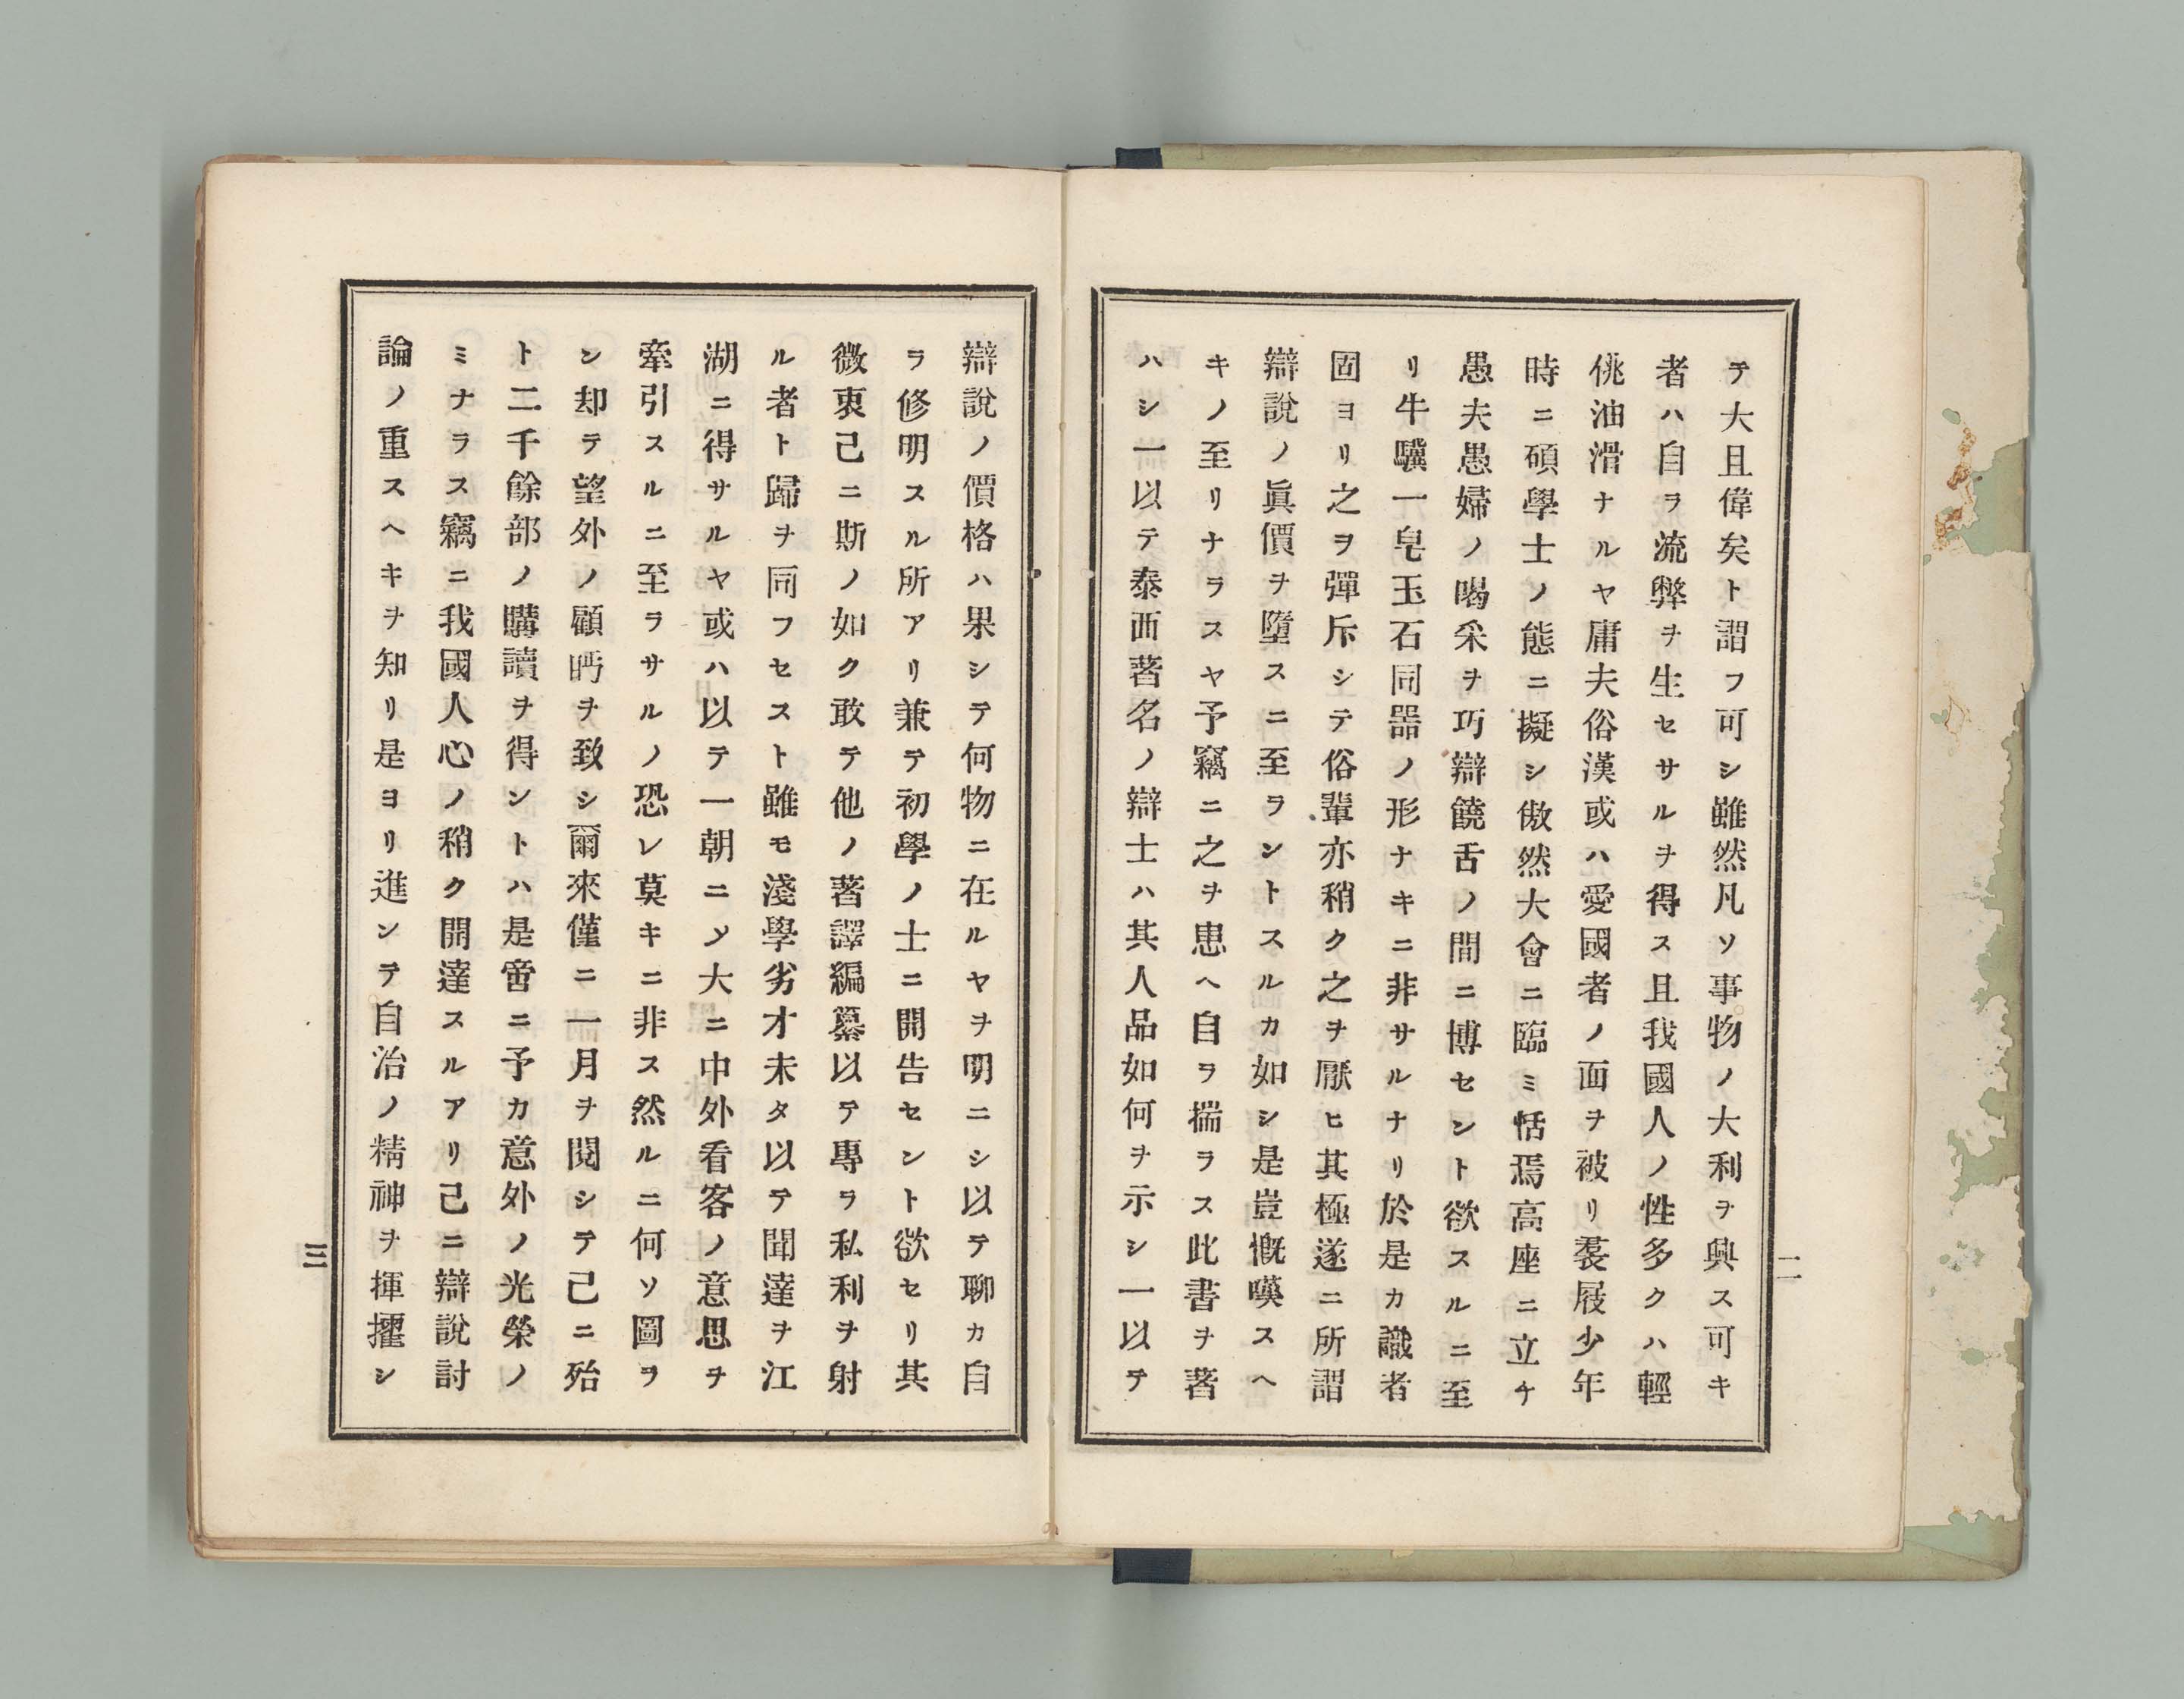 テ大且偉矣ト謂フ可シ雖然凡ソ事物ノ大利ヲ興ス可キ
者ハ自ヲ流弊ヲ生セサルヲ得ス且我國人ノ性多クハ輕
佻油滑ナルヤ庸夫俗漢或ハ愛國者ノ面ヲ被リ裘屐少年
時ニ碩學士ノ態ニ擬シ傲然大會ニ臨ミ恬焉高座ニ立チ
愚夫愚婦ノ喝采ヲ巧辯饒舌ノ間ニ博セント欲スルニ至
リ牛驥一皂玉石同噐ノ形ナキニ非サルナリ於是カ識者
固ヨリ之ヲ彈斥シテ俗輩亦稍ク之ヲ厭ヒ其極遂ニ所謂
辯說ノ眞價ヲ墮スニ至ラントスルカ如シ是豈慨嘆スヘ
キノ至リナラスヤ予竊ニ之ヲ患ヘ自ヲ揣ラス此書ヲ著
ハシ一以テ泰西著名ノ辯士ハ其人品如何ヲ示シ一以テ
二
辯說ノ價格ハ果シテ何物ニ在ルヤヲ明ニシ以テ聊カ自
ラ修明スル所アリ兼テ初學ノ士ニ開告セント欲セリ其
微衷己ニ斯ノ如ク敢テ他ノ著譯編纂以テ專ラ私利ヲ射
ル者ト歸ヲ同フセスト雖モ淺學劣才未タ以テ聞達ヲ江
湖ニ得サルヤ或ハ以テ一朝ニメ大ニ中外看客ノ意思ヲ
牽引スルニ至ラサルノ恐レ莫キニ非ス然ルニ何ソ圖ヲ
ン却テ望外ノ顧眄ヲ致シ爾來僅ニ一月ヲ閱シテ己ニ殆
ト二千餘部ノ購讀ヲ得ントハ是啻ニ予カ意外ノ光榮ノ
ミナラス竊ニ我國人心ノ稍ク開達スルアリ己ニ辯說討
論ノ重スヘキヲ知リ是ヨリ進ンテ自治ノ精神ヲ揮擢シ
三